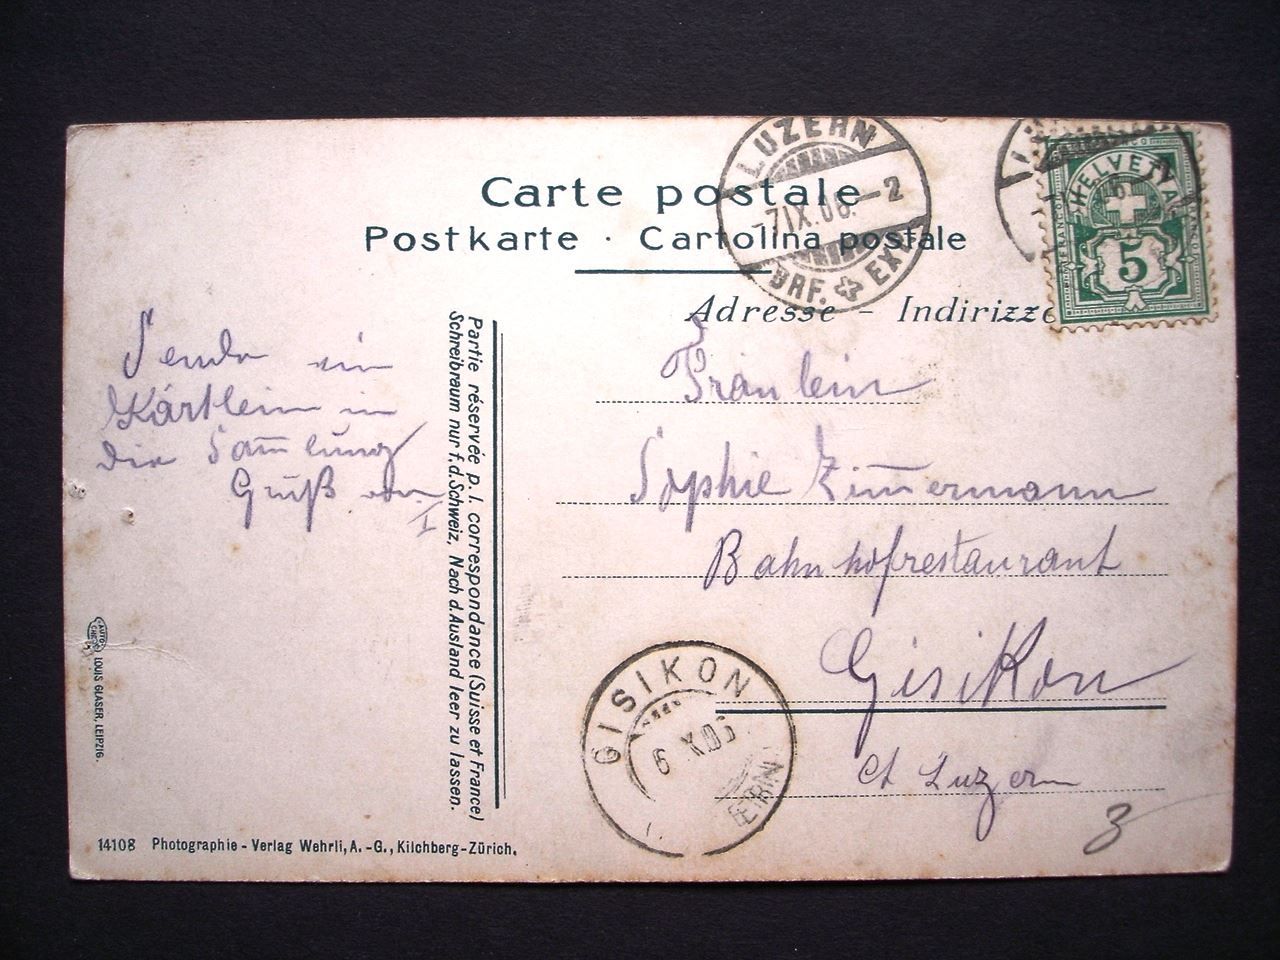 Carte postale
Postkarte · Cartolina postale
Adresse - Indirizzo
LUZERN
-7.IX.06.-2
BRF. EXP.
HELVETIA
5
Sende ein
Kärtlein in
die Sam̅lung
Gruß von
I
Partie réservée p. l. correspondance (Suisse et France)
Schreibraum nur f. d. Schweiz, Nach d. Ausland leer zu lassen.
Fräulein
Sophie Zim̅ermann
Bahnhofrestaurant
Gisikon
Ct Luzern
3
GISIKON
LOUIS GLASER, LEIPZIG.
14108 Photographie - Verlag Wehrli, A. -G., Kilchberg-Zürich.